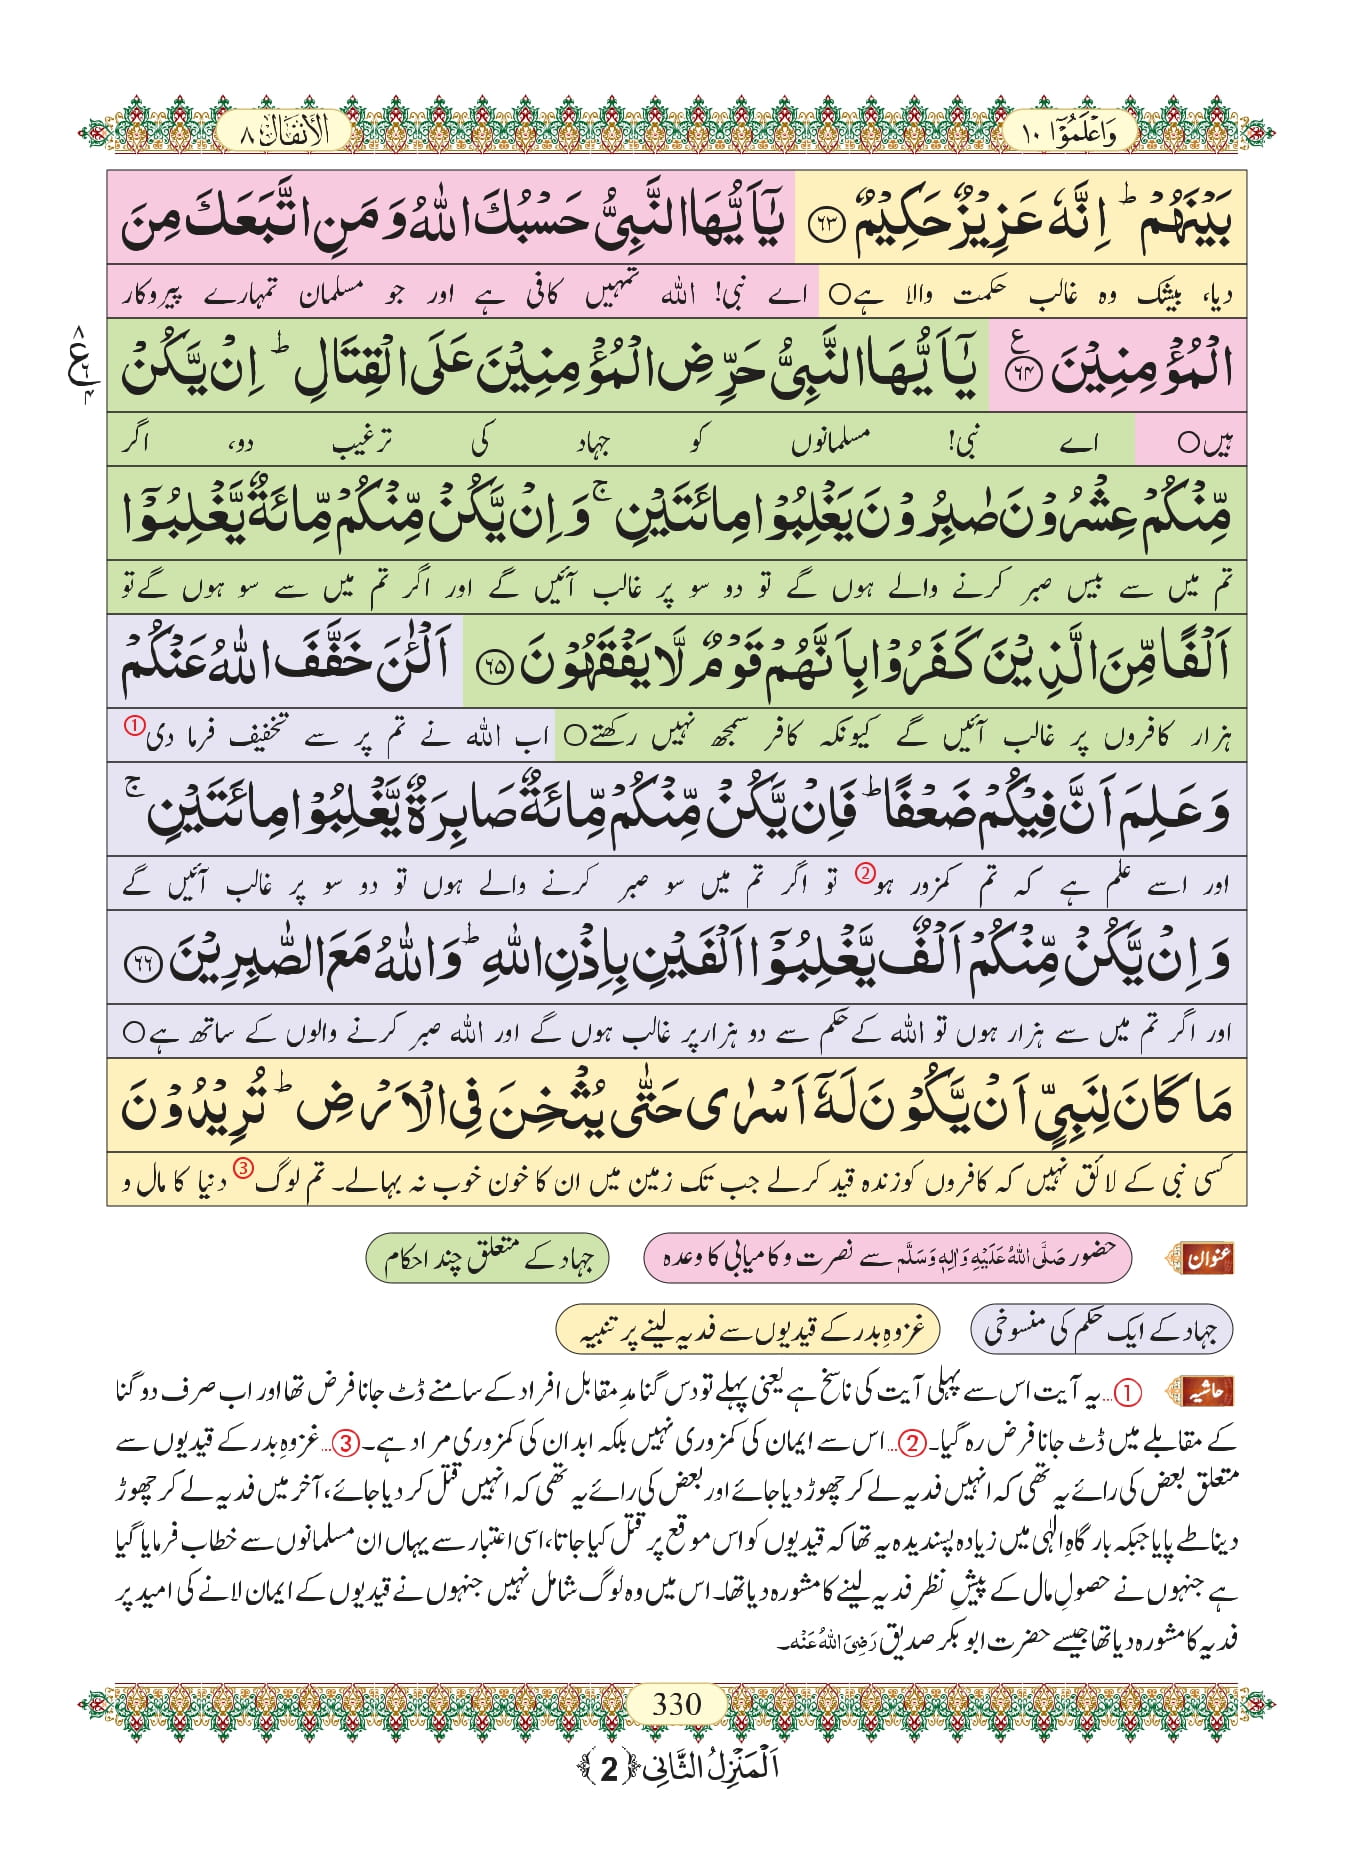 وَاعْلَمُوْۤا ۱۰
الأنفال ۸
بَیْنَهُمْؕ اِنَّهٗ عَزِیْزٌ حَكِیْمٌ ﴿۶۳﴾ یٰۤاَیُّهَا النَّبِیُّ حَسْبُكَ اللّٰهُ وَ مَنِ اتَّبَعَكَ مِنَ
دیا، بیشک وہ غالب حکمت والا ہے○ اے نبی! اللہ تمہیں کافی ہے اور جو مسلمان تمہارے پیروکار
الْمُؤْمِنِیْنَ ﴿۶۴﴾ع یٰۤاَیُّهَا النَّبِیُّ حَرِّضِ الْمُؤْمِنِیْنَ عَلَى الْقِتَالِؕ اِنْ یَّكُنْ
۸ ع ۶ ۴
ہیں○ اے نبی! مسلمانوں کو جہاد کی ترغیب دو، اگر
مِّنْكُمْ عِشْرُوْنَ صٰبِرُوْنَ یَغْلِبُوْا مِائَتَیْنِۚ وَ اِنْ یَّكُنْ مِّنْكُمْ مِّائَةٌ یَّغْلِبُوْۤا
تم میں سے بیس صبر کرنے والے ہوں گے تو دو سو پر غالب آئیں گے اور اگر تم میں سے سو ہوں گے تو
اَلْفًا مِّنَ الَّذِیْنَ كَفَرُوْا بِاَنَّهُمْ قَوْمٌ لَّا یَفْقَهُوْنَ ﴿۶۵﴾ اَلْـٰٔنَ خَفَّفَ اللّٰهُ عَنْكُمْ
ہزار کافروں پر غالب آئیں گے کیونکہ کافر سمجھ نہیں رکھتے○ اب اللہ نے تم پر سے تخفیف فرما دی①
وَ عَلِمَ اَنَّ فِیْكُمْ ضَعْفًاؕ فَاِنْ یَّكُنْ مِّنْكُمْ مِّائَةٌ صَابِرَةٌ یَّغْلِبُوْا مِائَتَیْنِۚ
اور اسے علم ہے کہ تم کمزور ہو② تو اگر تم میں سو صبر کرنے والے ہوں تو دو سو پر غالب آئیں گے
وَ اِنْ یَّكُنْ مِّنْكُمْ اَلْفٌ یَّغْلِبُوْۤا اَلْفَیْنِ بِاِذْنِ اللّٰهِؕ وَ اللّٰهُ مَعَ الصّٰبِرِیْنَ ﴿۶۶﴾
اور اگر تم میں سے ہزار ہوں تو اللہ کے حکم سے دو ہزار پر غالب ہوں گے اور اللہ صبر کرنے والوں کے ساتھ ہے○
مَا كَانَ لِنَبِیٍّ اَنْ یَّكُوْنَ لَهٗۤ اَسْرٰى حَتّٰى یُثْخِنَ فِی الْاَرْضِؕ تُرِیْدُوْنَ
کسی نبی کے لائق نہیں کہ کافروں کو زندہ قید کرلے جب تک زمین میں ان کا خون خوب نہ بہالے۔ تم لوگ③ دنیا کا مال و
عنوان حضور صَلَّى اللهُ عَلَيْهِ وَاٰلِهٖ وَسَلَّمَ سے نصرت و کامیابی کا وعدہ جہاد کے متعلق چند احکام
جہاد کے ایک حکم کی منسوخی غزوہِ بدر کے قیدیوں سے فدیہ لینے پر تنبیہ
حاشیہ ①...یہ آیت اس سے پہلی آیت کی ناسخ ہے یعنی پہلے تو دس گنا مدِمقابل افراد کے سامنے ڈٹ جانا فرض تھا اور اب صرف دو گنا
کے مقابلے میں ڈٹ جانا فرض رہ گیا۔ ②...اس سے ایمان کی کمزوری نہیں بلکہ ابدان کی کمزوری مراد ہے۔ ③...غزوہِ بدر کے قیدیوں سے
متعلق بعض کی رائے یہ تھی کہ انہیں فدیہ لے کر چھوڑ دیا جائے اور بعض کی رائے یہ تھی کہ انہیں قتل کر دیا جائے، آخر میں فدیہ لے کر چھوڑ
دینا طے پایا جبکہ بارگاہِ الٰہی میں زیادہ پسندیدہ یہ تھا کہ قیدیوں کو اس موقع پر قتل کیا جاتا، اسی اعتبار سے یہاں ان مسلمانوں سے خطاب فرمایا گیا
ہے جنہوں نے حصولِ مال کے پیشِ نظر فدیہ لینے کا مشورہ دیا تھا۔ اس میں وہ لوگ شامل نہیں جنہوں نے قیدیوں کے ایمان لانے کی امید پر
فدیہ کا مشورہ دیا تھا جیسے حضرت ابو بکر صدیق رَضِیَ اللهُ عَنْہ۔
330
اَلْمَنْزِلُ الثَّانِی ﴿2﴾